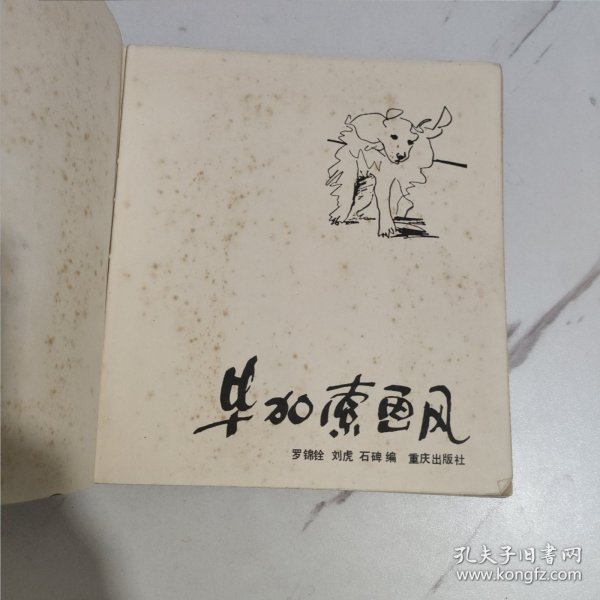 毕加索画风
罗锦铨 刘虎 石碑 编 重庆出版社
孔夫子旧书网
www.kongfz.com